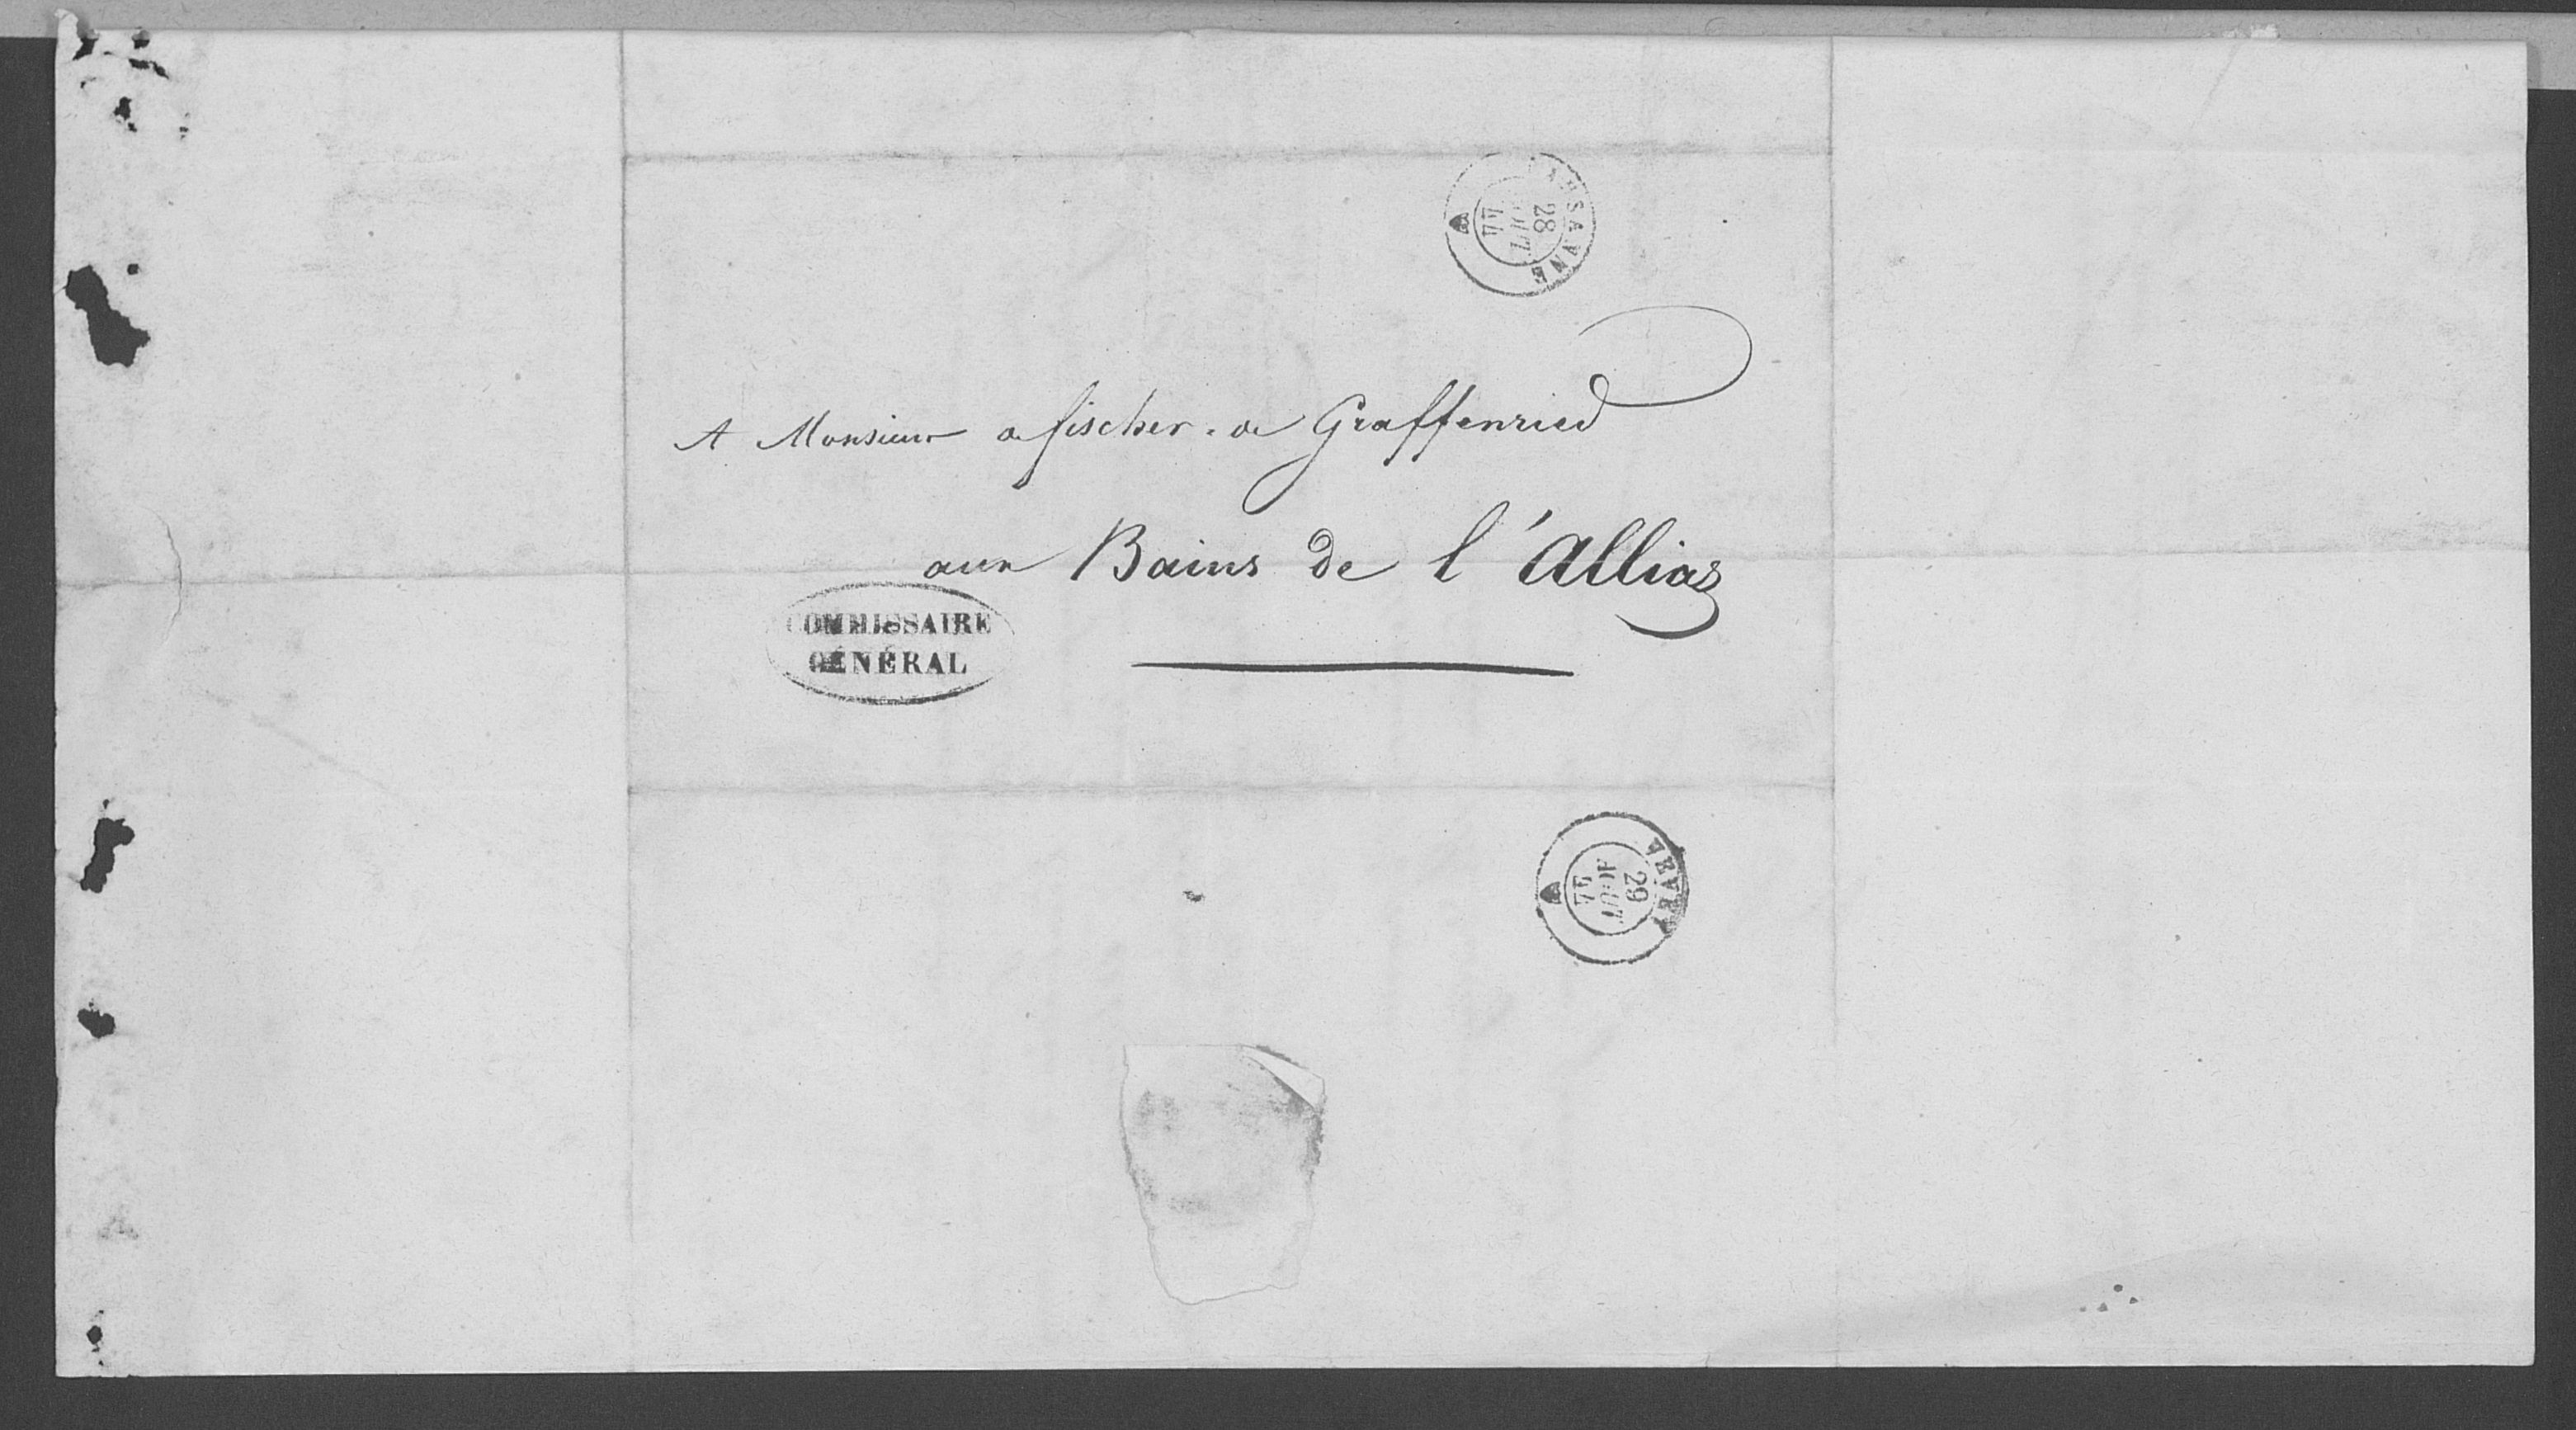 LAUSANNE
28
AOUT
44
A Monsieur a fischer. a Graffenried
aux Bains de l'Alliaz
COMMISSAIRE
GÉNÉRAL
VEVEY
29
AOUT